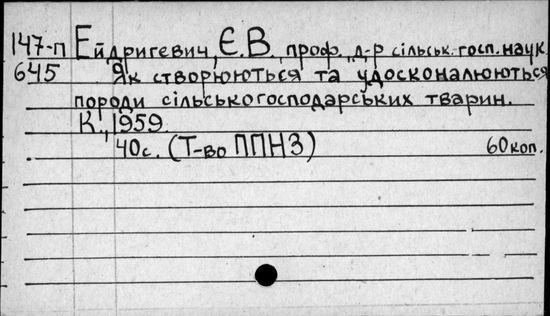 147-п Ейдригевич, Є.В., проф., д-р сільськ.-госп. наук.
645 Як створюються та удосконалюються
породи сільськогосподарських тварин.
К., 1959.
40с. (Т-во ППНЗ) 60коп.